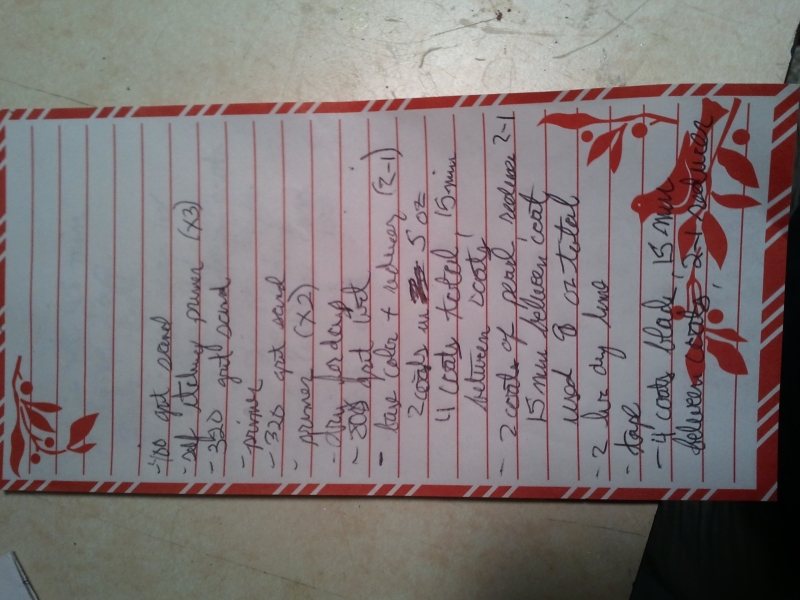 -400 grit sand
-self etching primer (x3)
-320 grit sand
-primer
-320 grit sand
- primer (x2)
- dry for days
- 800 grit wet
- base color + reducer (2-1)
2 coats in 5 oz
4 coats total, 15 min
between coats
- 2 coats of pearl reducer 2-1
15 min between coat
used 8 oz total
- 2 hr dry time
- tape
- 4 coats black, 15 min
between coats, 2-1 reducer